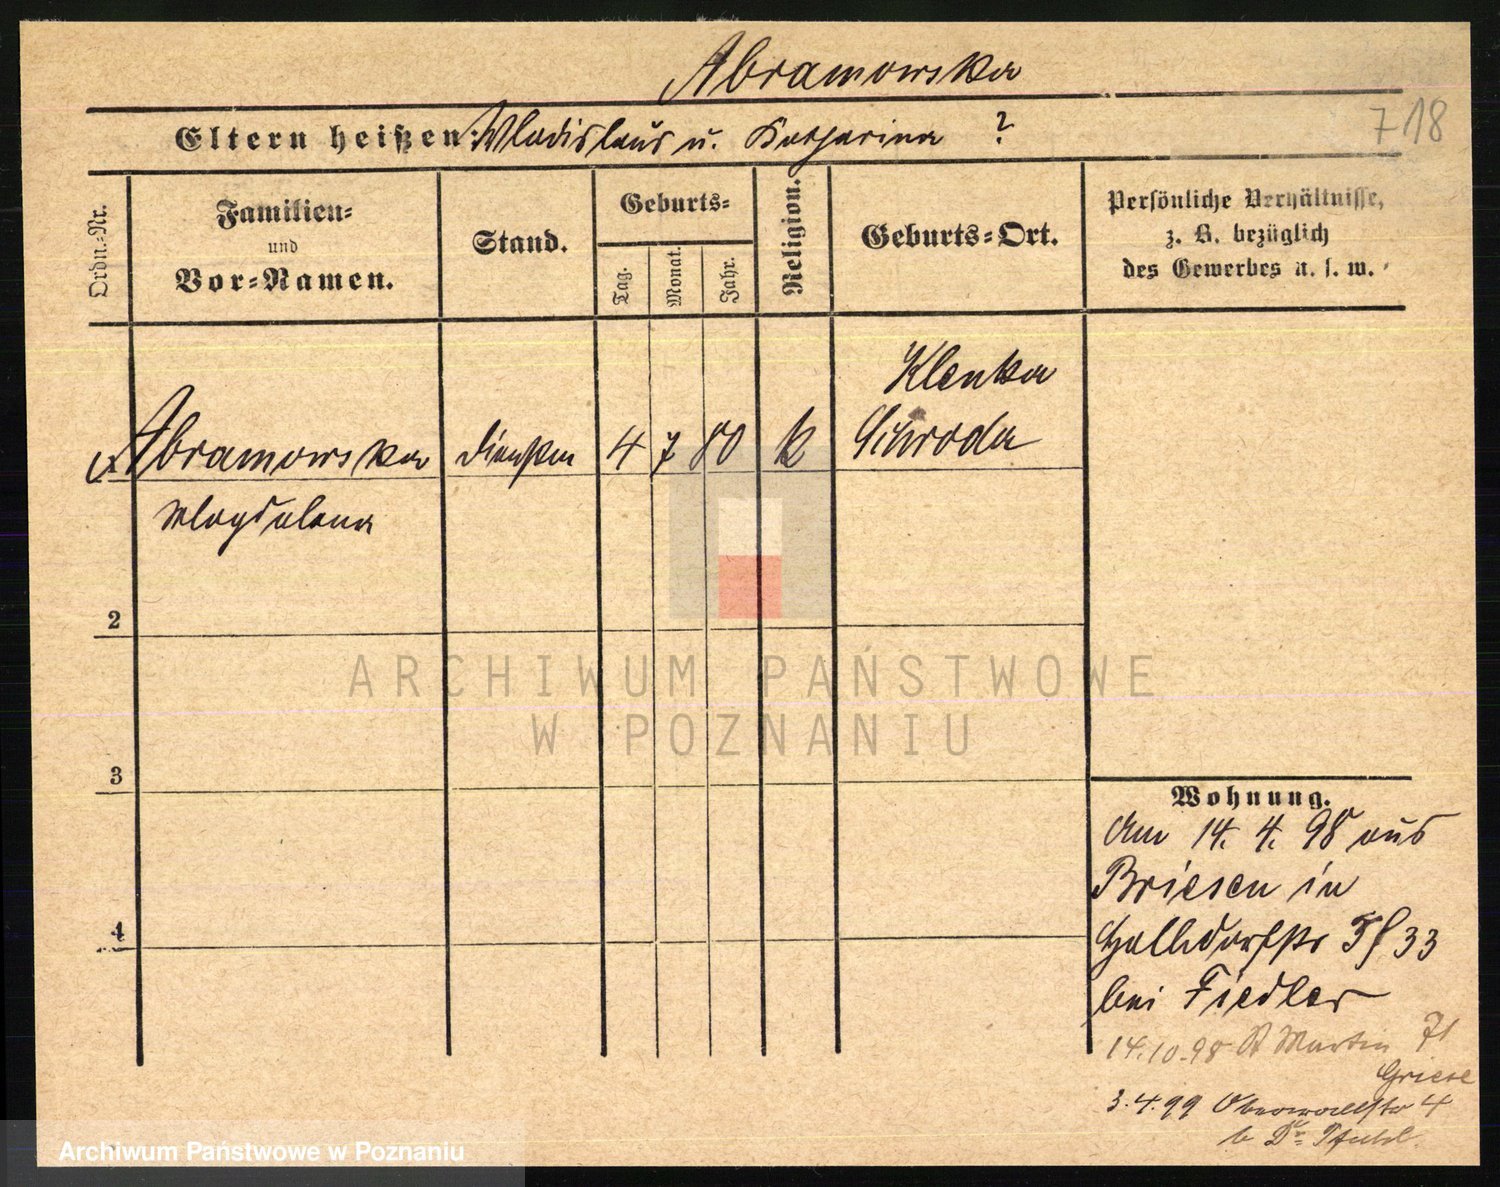 Abramowska
718
Eltern heißen: Wladislaus u. Katharina ?
Ordn.-Nr.
Familien-
und
Vor-Namen.
Stand.
Geburts-
Tag.
Monat.
Jahr.
Religion.
Geburts-Ort.
Persönliche Verhältnisse,
z. B. bezüglich
des Gewerbes u. s. w.
Abramowska
Magdalena
4 7 80 k
Klenka
Schroda
2
3
4
Wohnung.
Am 14. 4. 98 aus
Briesen in
33
bei Fiedler
14.10.98 St Martin 71
Griese
3.4.99 4
b Dr
ARCHIWUM PAŃSTWOWE
W POZNANIU
Archiwum Państwowe w Poznaniu